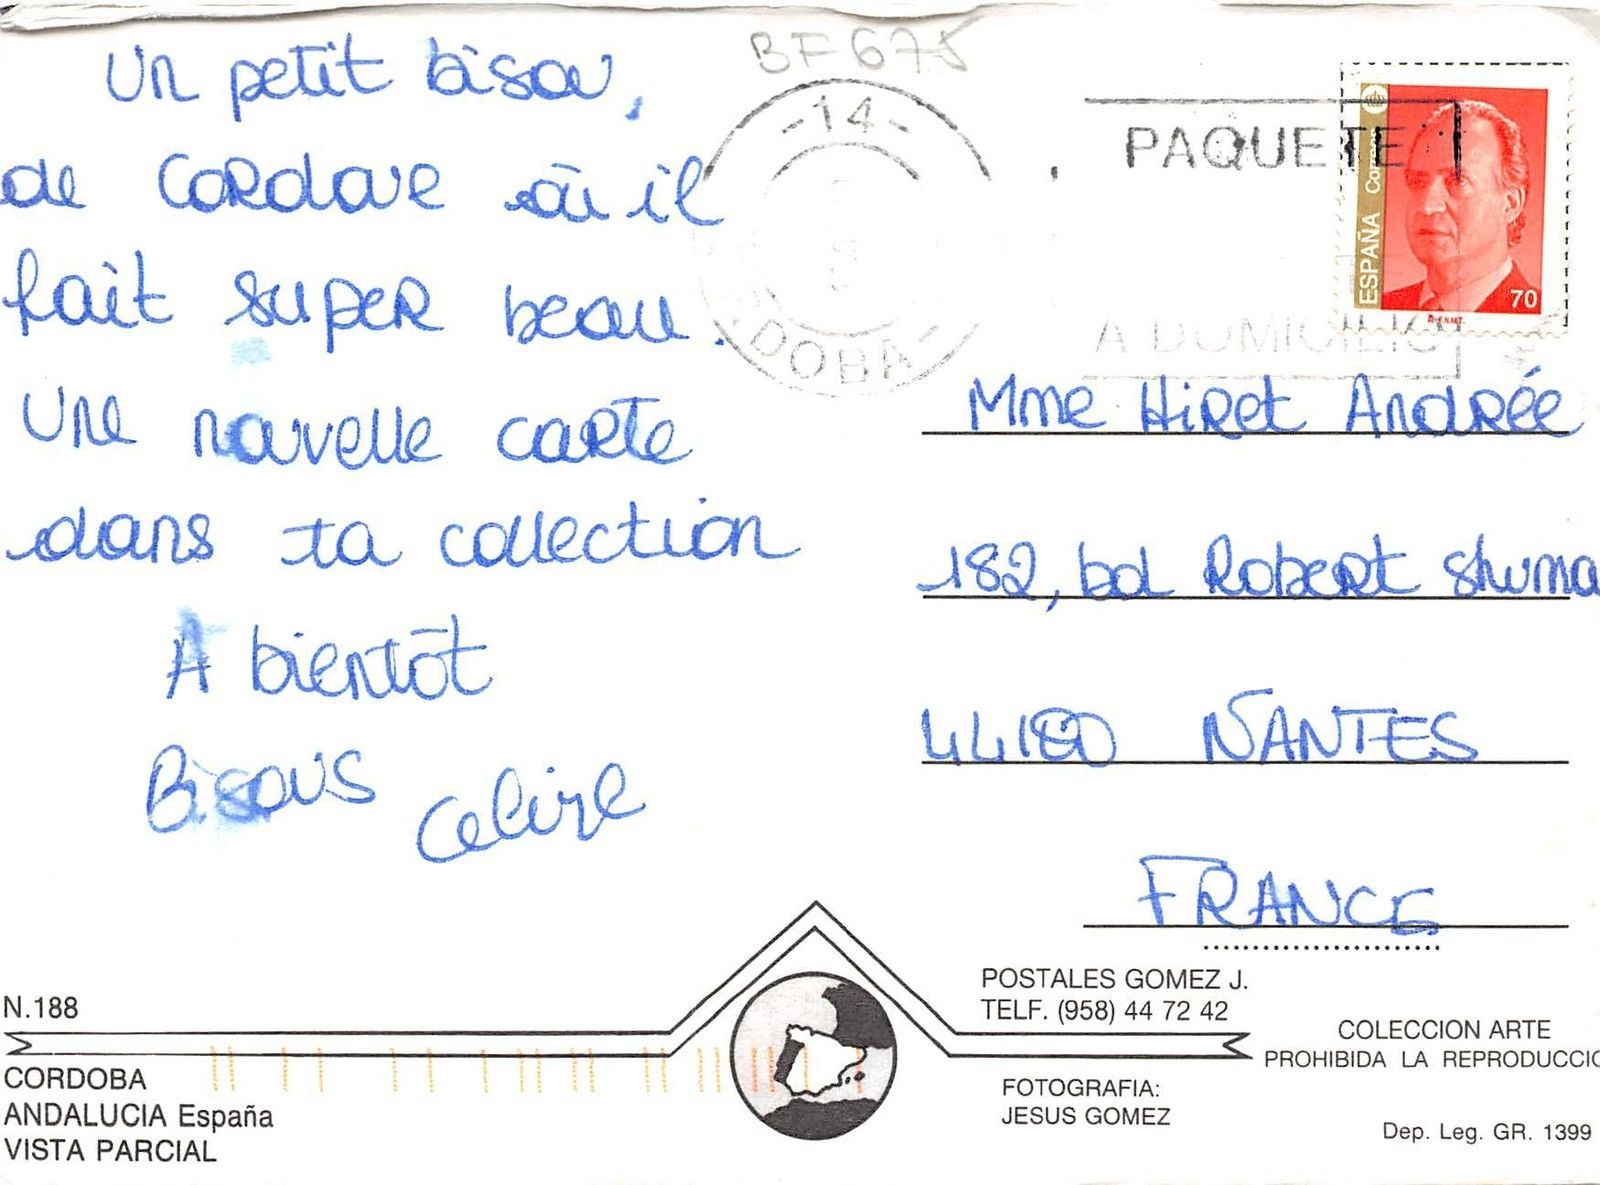 BF 675
Un petit bisou,
de CORdoue où il
fait super beau.
Une nouvelle carte
dans ta collection
A bientôt
Bisous Celine
-14-
DOBA
PAQUETE
A DOMICILIO
ESPAÑA Correos
70
F.N.M.T.
Mme Hiret Andrée
182, bd Robert Shuma
44180 NANTES
FRANCE
N.188
CORDOBA
ANDALUCIA España
VISTA PARCIAL
POSTALES GOMEZ J.
TELF. (958) 44 72 42
FOTOGRAFIA:
JESUS GOMEZ
COLECCION ARTE
PROHIBIDA LA REPRODUCCIO
Dep. Leg. GR. 1399